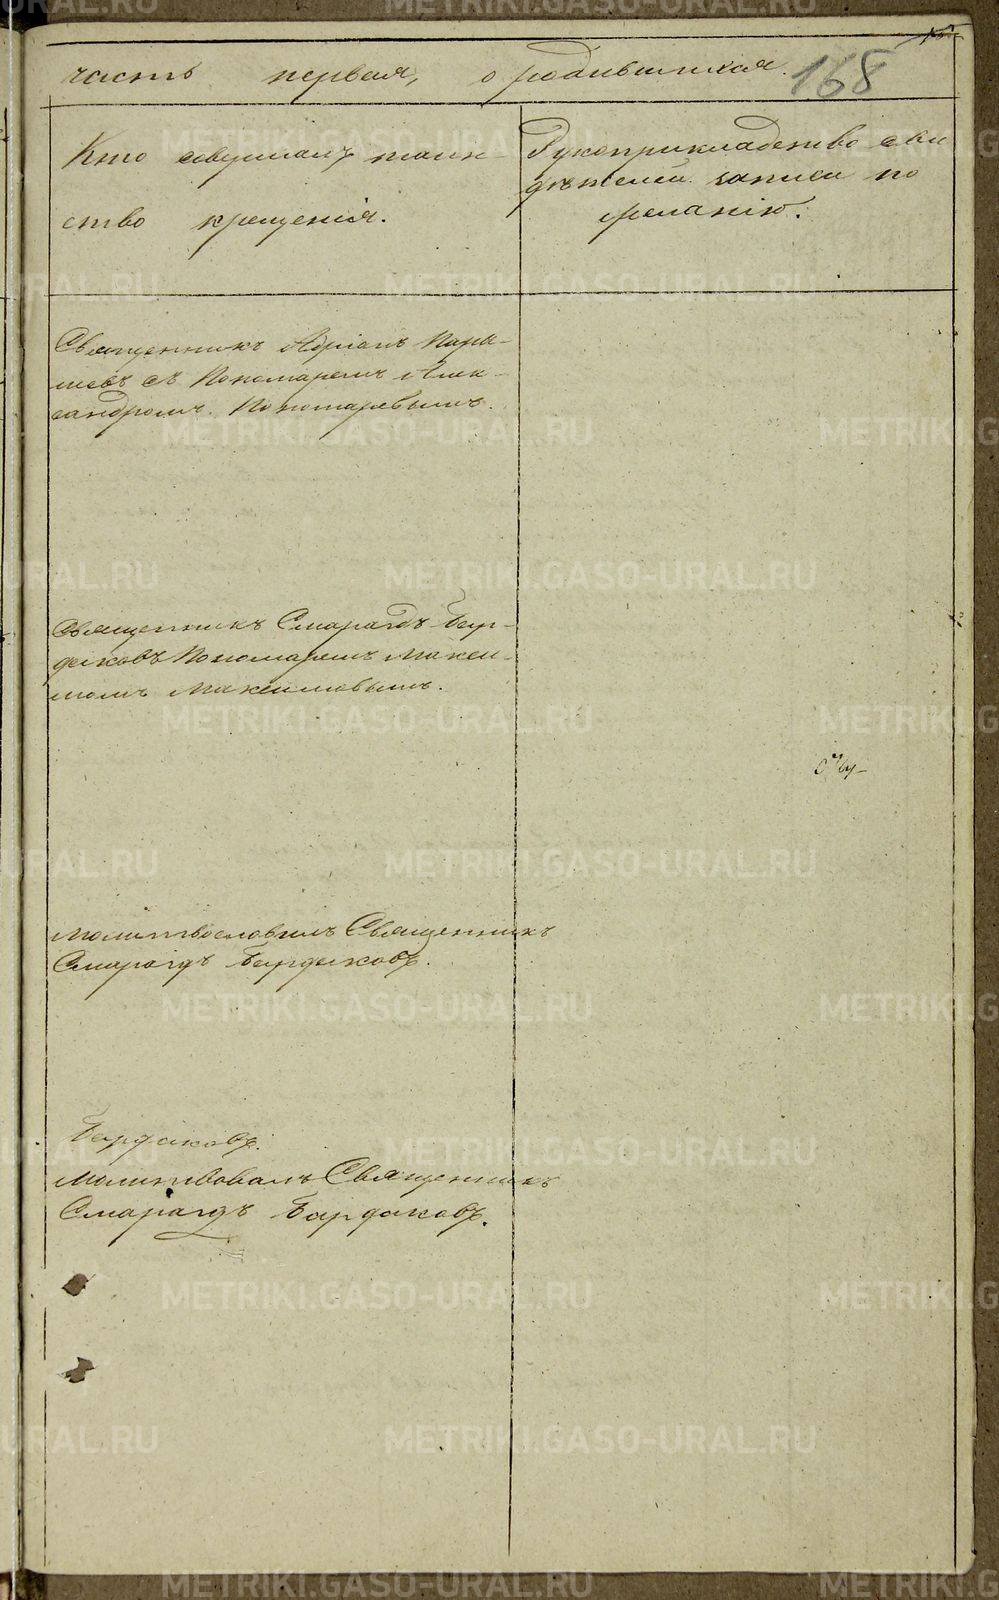 часть первая, о родившихся.
168
Кто совершалъ таин-
ство крещенія.
Рукоприкладство сви
дѣтелей записи по
желанію.
Священникъ Адріанъ
съ Пономаремъ Алек-
сандромъ Пономаревымъ.
Священникъ Смарагдъ Бар-
даковъ Пономаремъ Макси-
момъ Максимовымъ.
Молитвословилъ Священникъ
Смарагдъ Бардаковъ.
Бардаковъ.
Молитвовалъ Священникъ
Смарагдъ Бардаковъ.
METRIKI.GASO-URAL.RU